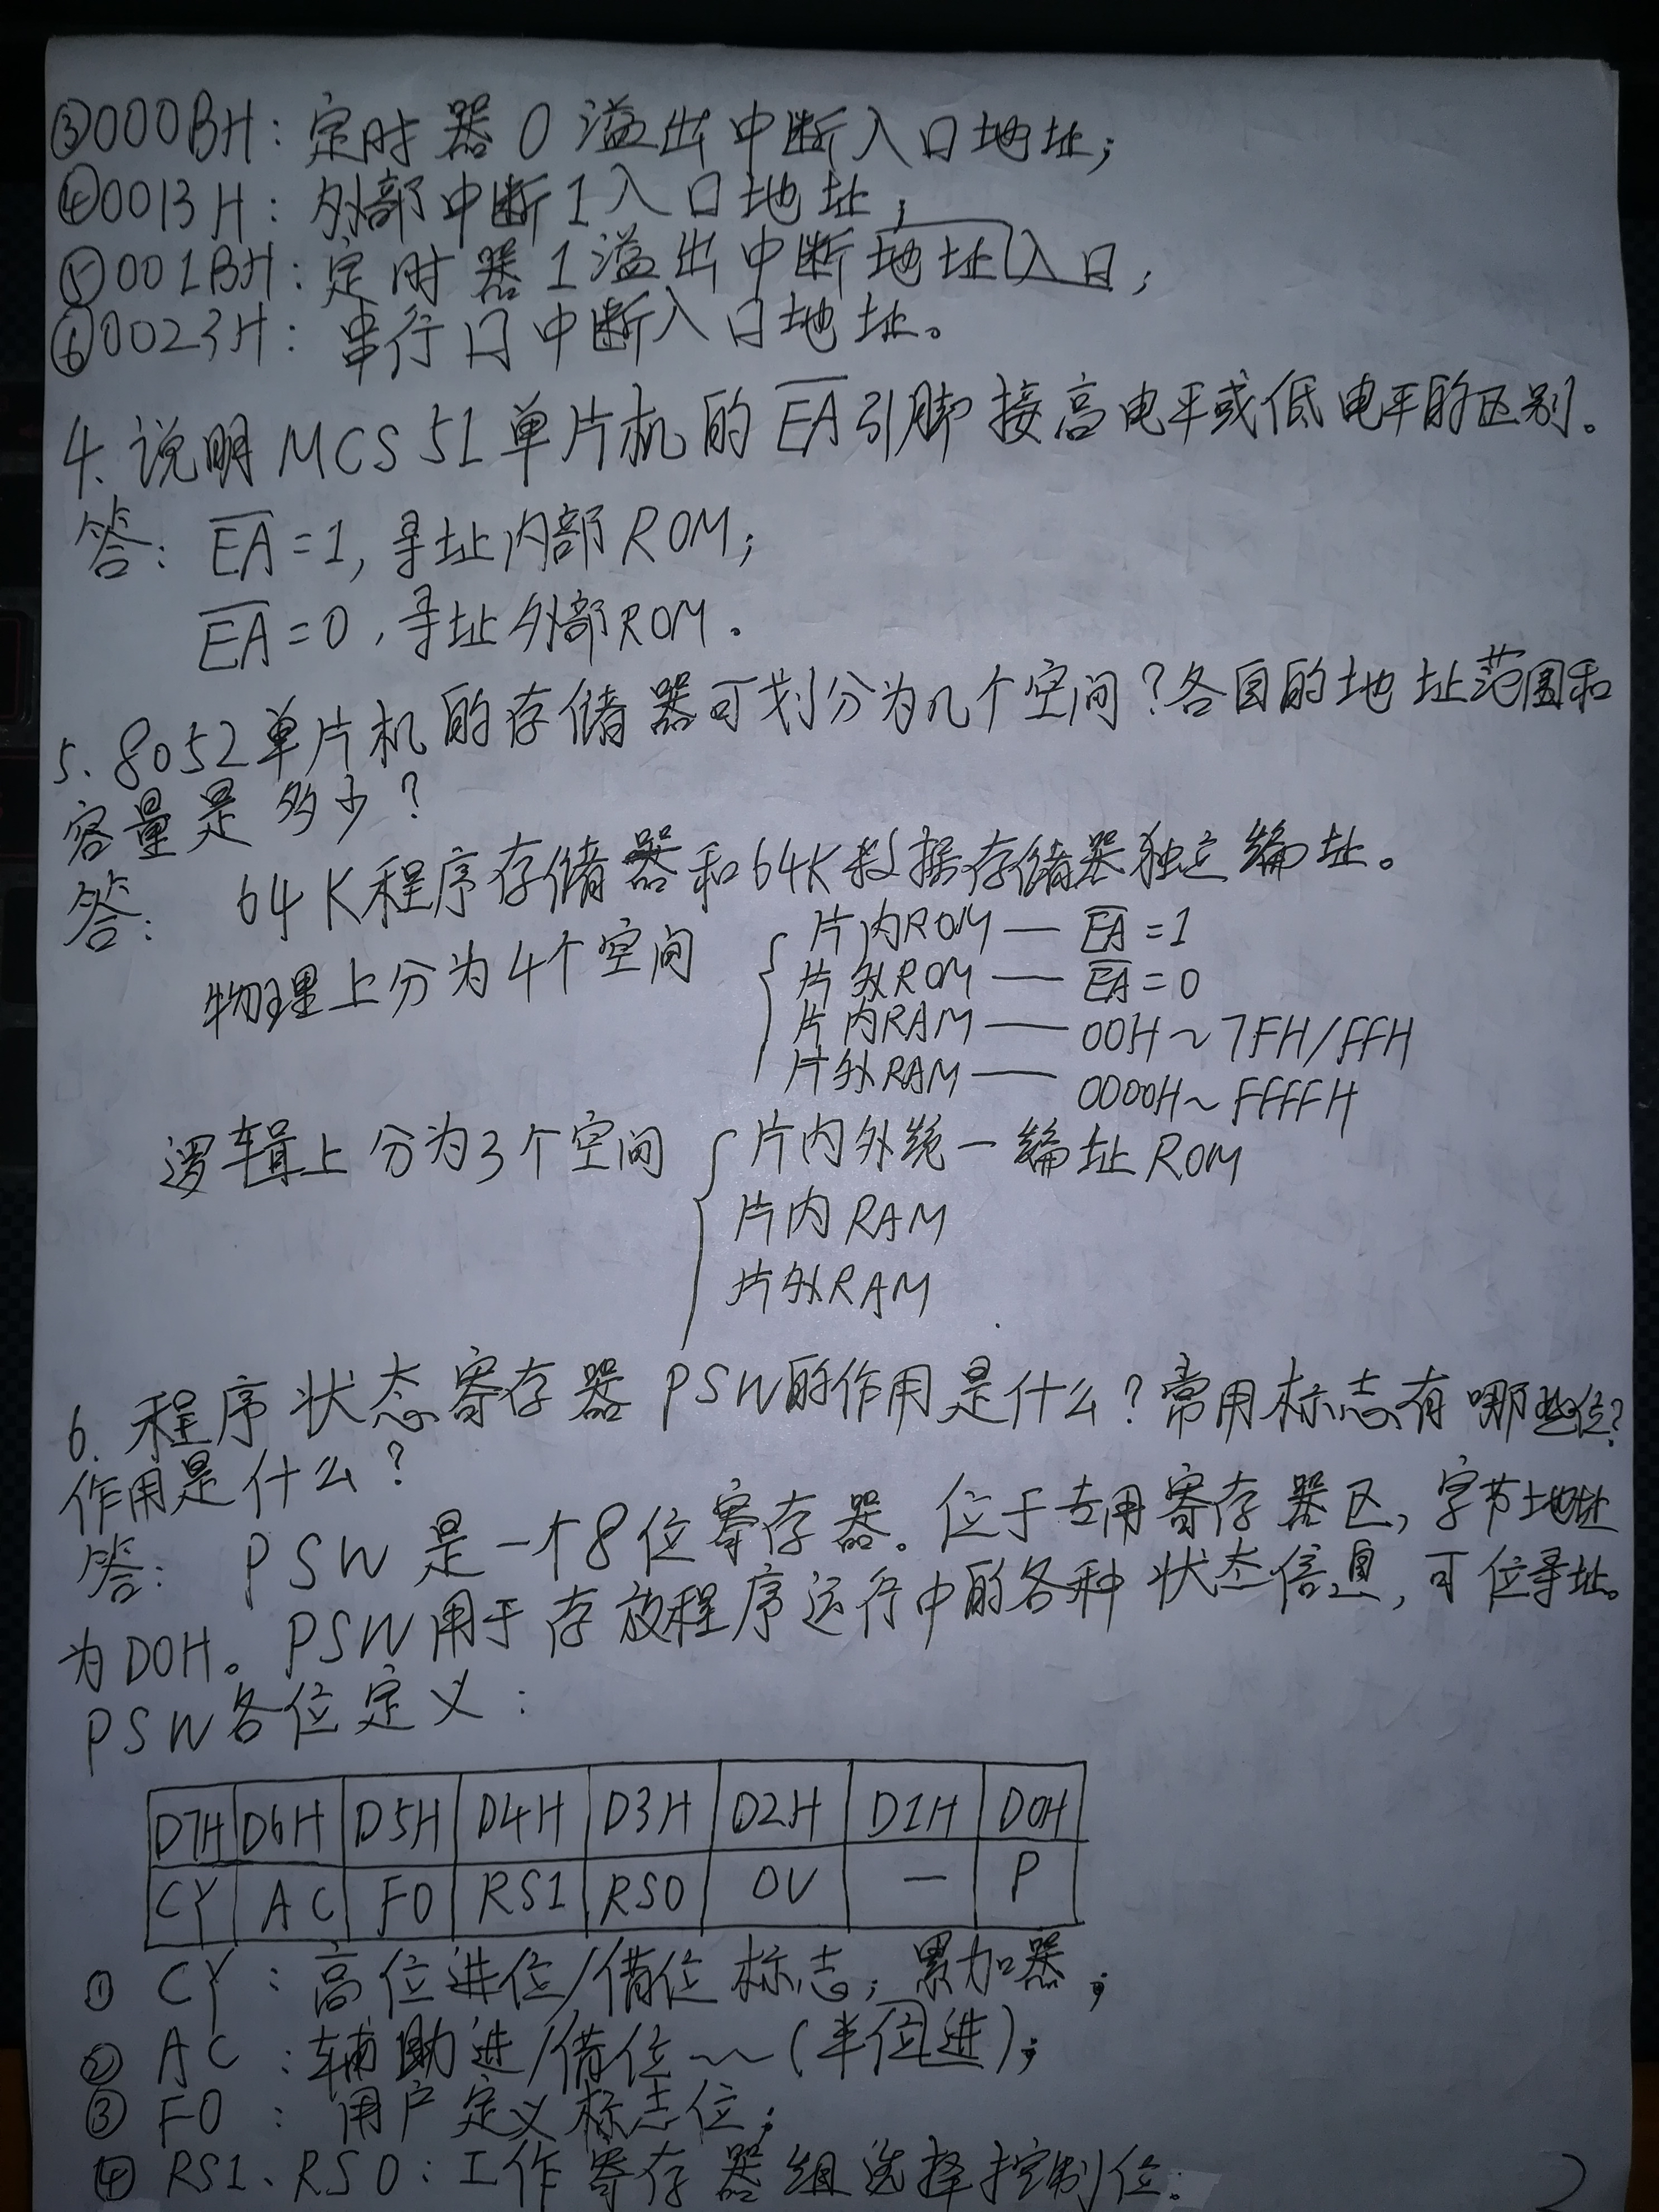 ③000BH：定时器0溢出中断入口地址；
④0013H：外部中断1入口地址；
⑤001BH：定时器1溢出中断地址入口；
⑥0023H：串行口中断入口地址。
4.说明MCS51单片机的E̅A̅引脚接高电平或低电平的区别。
答：E̅A̅=1,寻址内部ROM；
E̅A̅=0,寻址外部ROM.
5、8052单片机的存储器可划分为几个空间？各自的地址范围和
容量是多少？
答：64K程序存储器和64K数据存储器独立编址。
物理上分为4个空间
片内ROM — E̅A̅=1
片外ROM — E̅A̅=0
片内RAM — 00H~7FH/FFH
片外RAM — 0000H~FFFFH
逻辑上分为3个空间
片内外统一编址ROM
片内RAM
片外RAM
6.程序状态寄存器PSW的作用是什么？常用标志有哪些位？
作用是什么？
答：PSW是一个8位寄存器。位于专用寄存器区,字节地址
为D0H。PSW用于存放程序运行中的各种状态信息,可位寻址。
PSW各位定义：
D7H D6H D5H D4H D3H D2H D1H D0H
CY AC F0 RS1 RS0 OV — P
① CY：高位进位/借位标志；累加器；
② AC：辅助进/借位~~(半位进)；
③ F0：用户定义标志位；
④ RS1、RS0：工作寄存器组选择控制位：
2